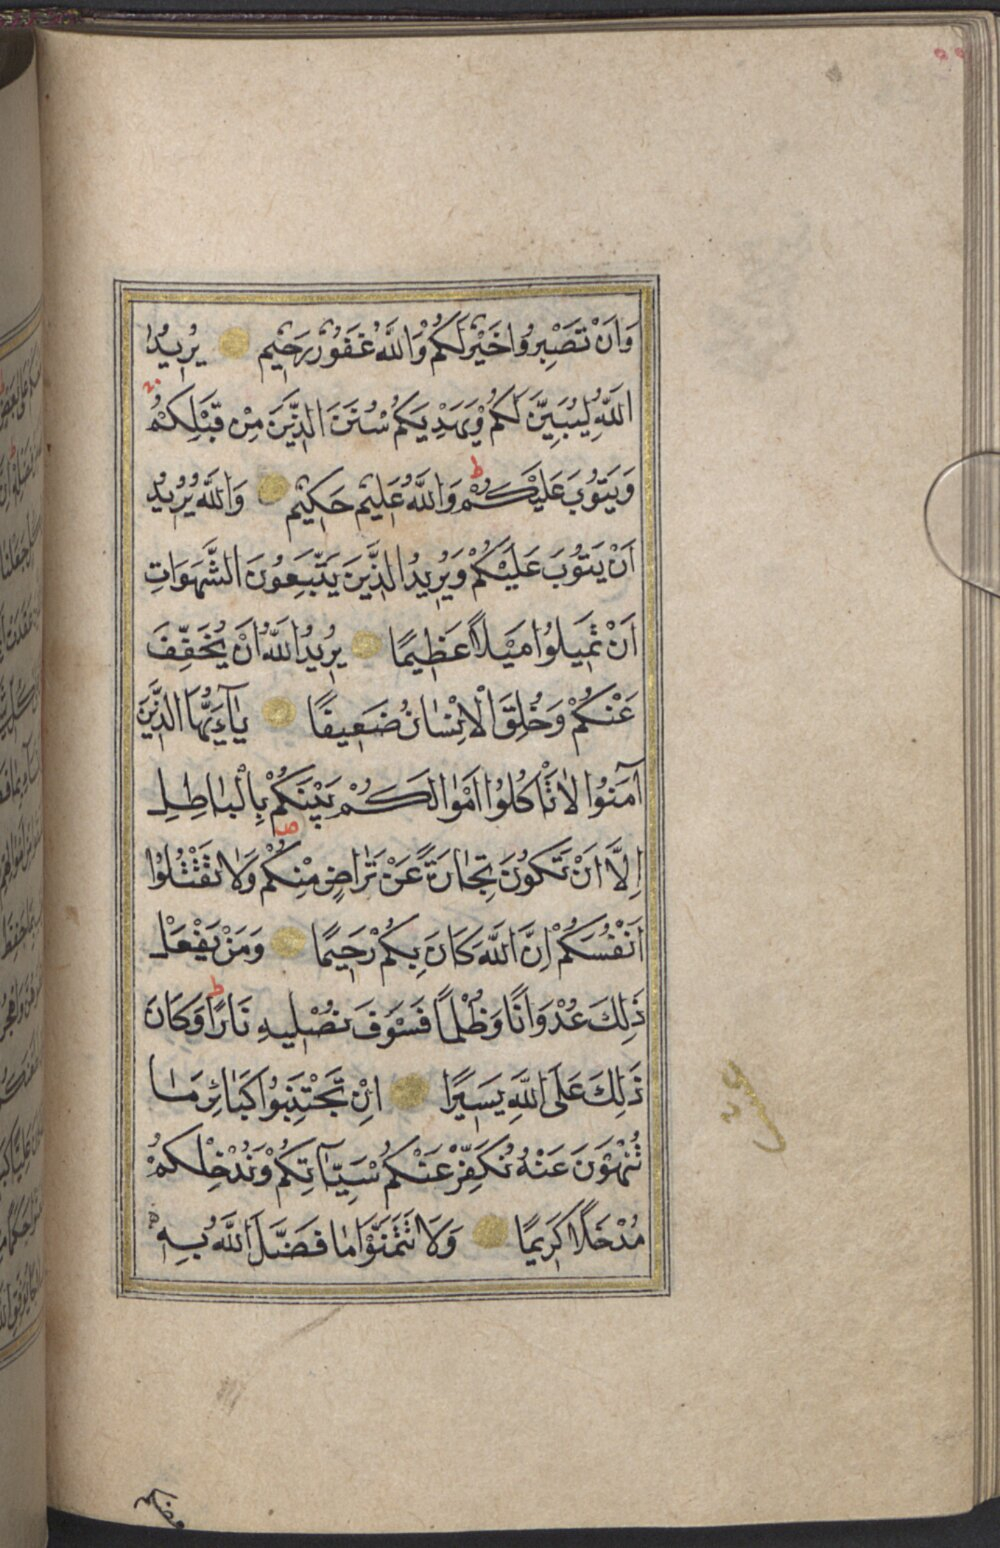 وَاَنْ تَصْبِرُوا خَيْرٌ لَكُمْ وَاللّٰهُ غَفُورٌ رَحِيمٌ يُرِيدُ
اللّٰهُ لِيُبَيِّنَ لَكُمْ وَيَهْدِيَكُمْ سُنَنَ الَّذِينَ مِنْ قَبْلِكُمْ
وَيَتُوبَ عَلَيْكُمْ وَاللّٰهُ عَلِيمٌ حَكِيمٌ وَاللّٰهُ يُرِيدُ
اَنْ يَتُوبَ عَلَيْكُمْ وَيُرِيدُ الَّذِينَ يَتَّبِعُونَ الشَّهَوَاتِ
اَنْ تَمِيلُوا مَيْلًا عَظِيمًا يُرِيدُ اللّٰهُ اَنْ يُخَفِّفَ
عَنْكُمْ وَخُلِقَ الْاِنْسَانُ ضَعِيفًا يَآاَيُّهَا الَّذِينَ
آمَنُوا لَا تَاْكُلُوا اَمْوَالَكُمْ بَيْنَكُمْ بِالْبَاطِلِ
اِلَّا اَنْ تَكُونَ تِجَارَةً عَنْ تَرَاضٍ مِنْكُمْ وَلَا تَقْتُلُوا
اَنْفُسَكُمْ اِنَّ اللّٰهَ كَانَ بِكُمْ رَحِيمًا وَمَنْ يَفْعَلْ
ذٰلِكَ عُدْوَانًا وَظُلْمًا فَسَوْفَ نُصْلِيهِ نَارًا وَكَانَ
ذٰلِكَ عَلَى اللّٰهِ يَسِيرًا اِنْ تَجْتَنِبُوا كَبَائِرَ مَا
تُنْهَوْنَ عَنْهُ نُكَفِّرْ عَنْكُمْ سَيِّـَٔاتِكُمْ وَنُدْخِلْكُمْ
مُدْخَلًا كَرِيمًا وَلَا تَتَمَنَّوْا مَا فَضَّلَ اللّٰهُ بِهِ